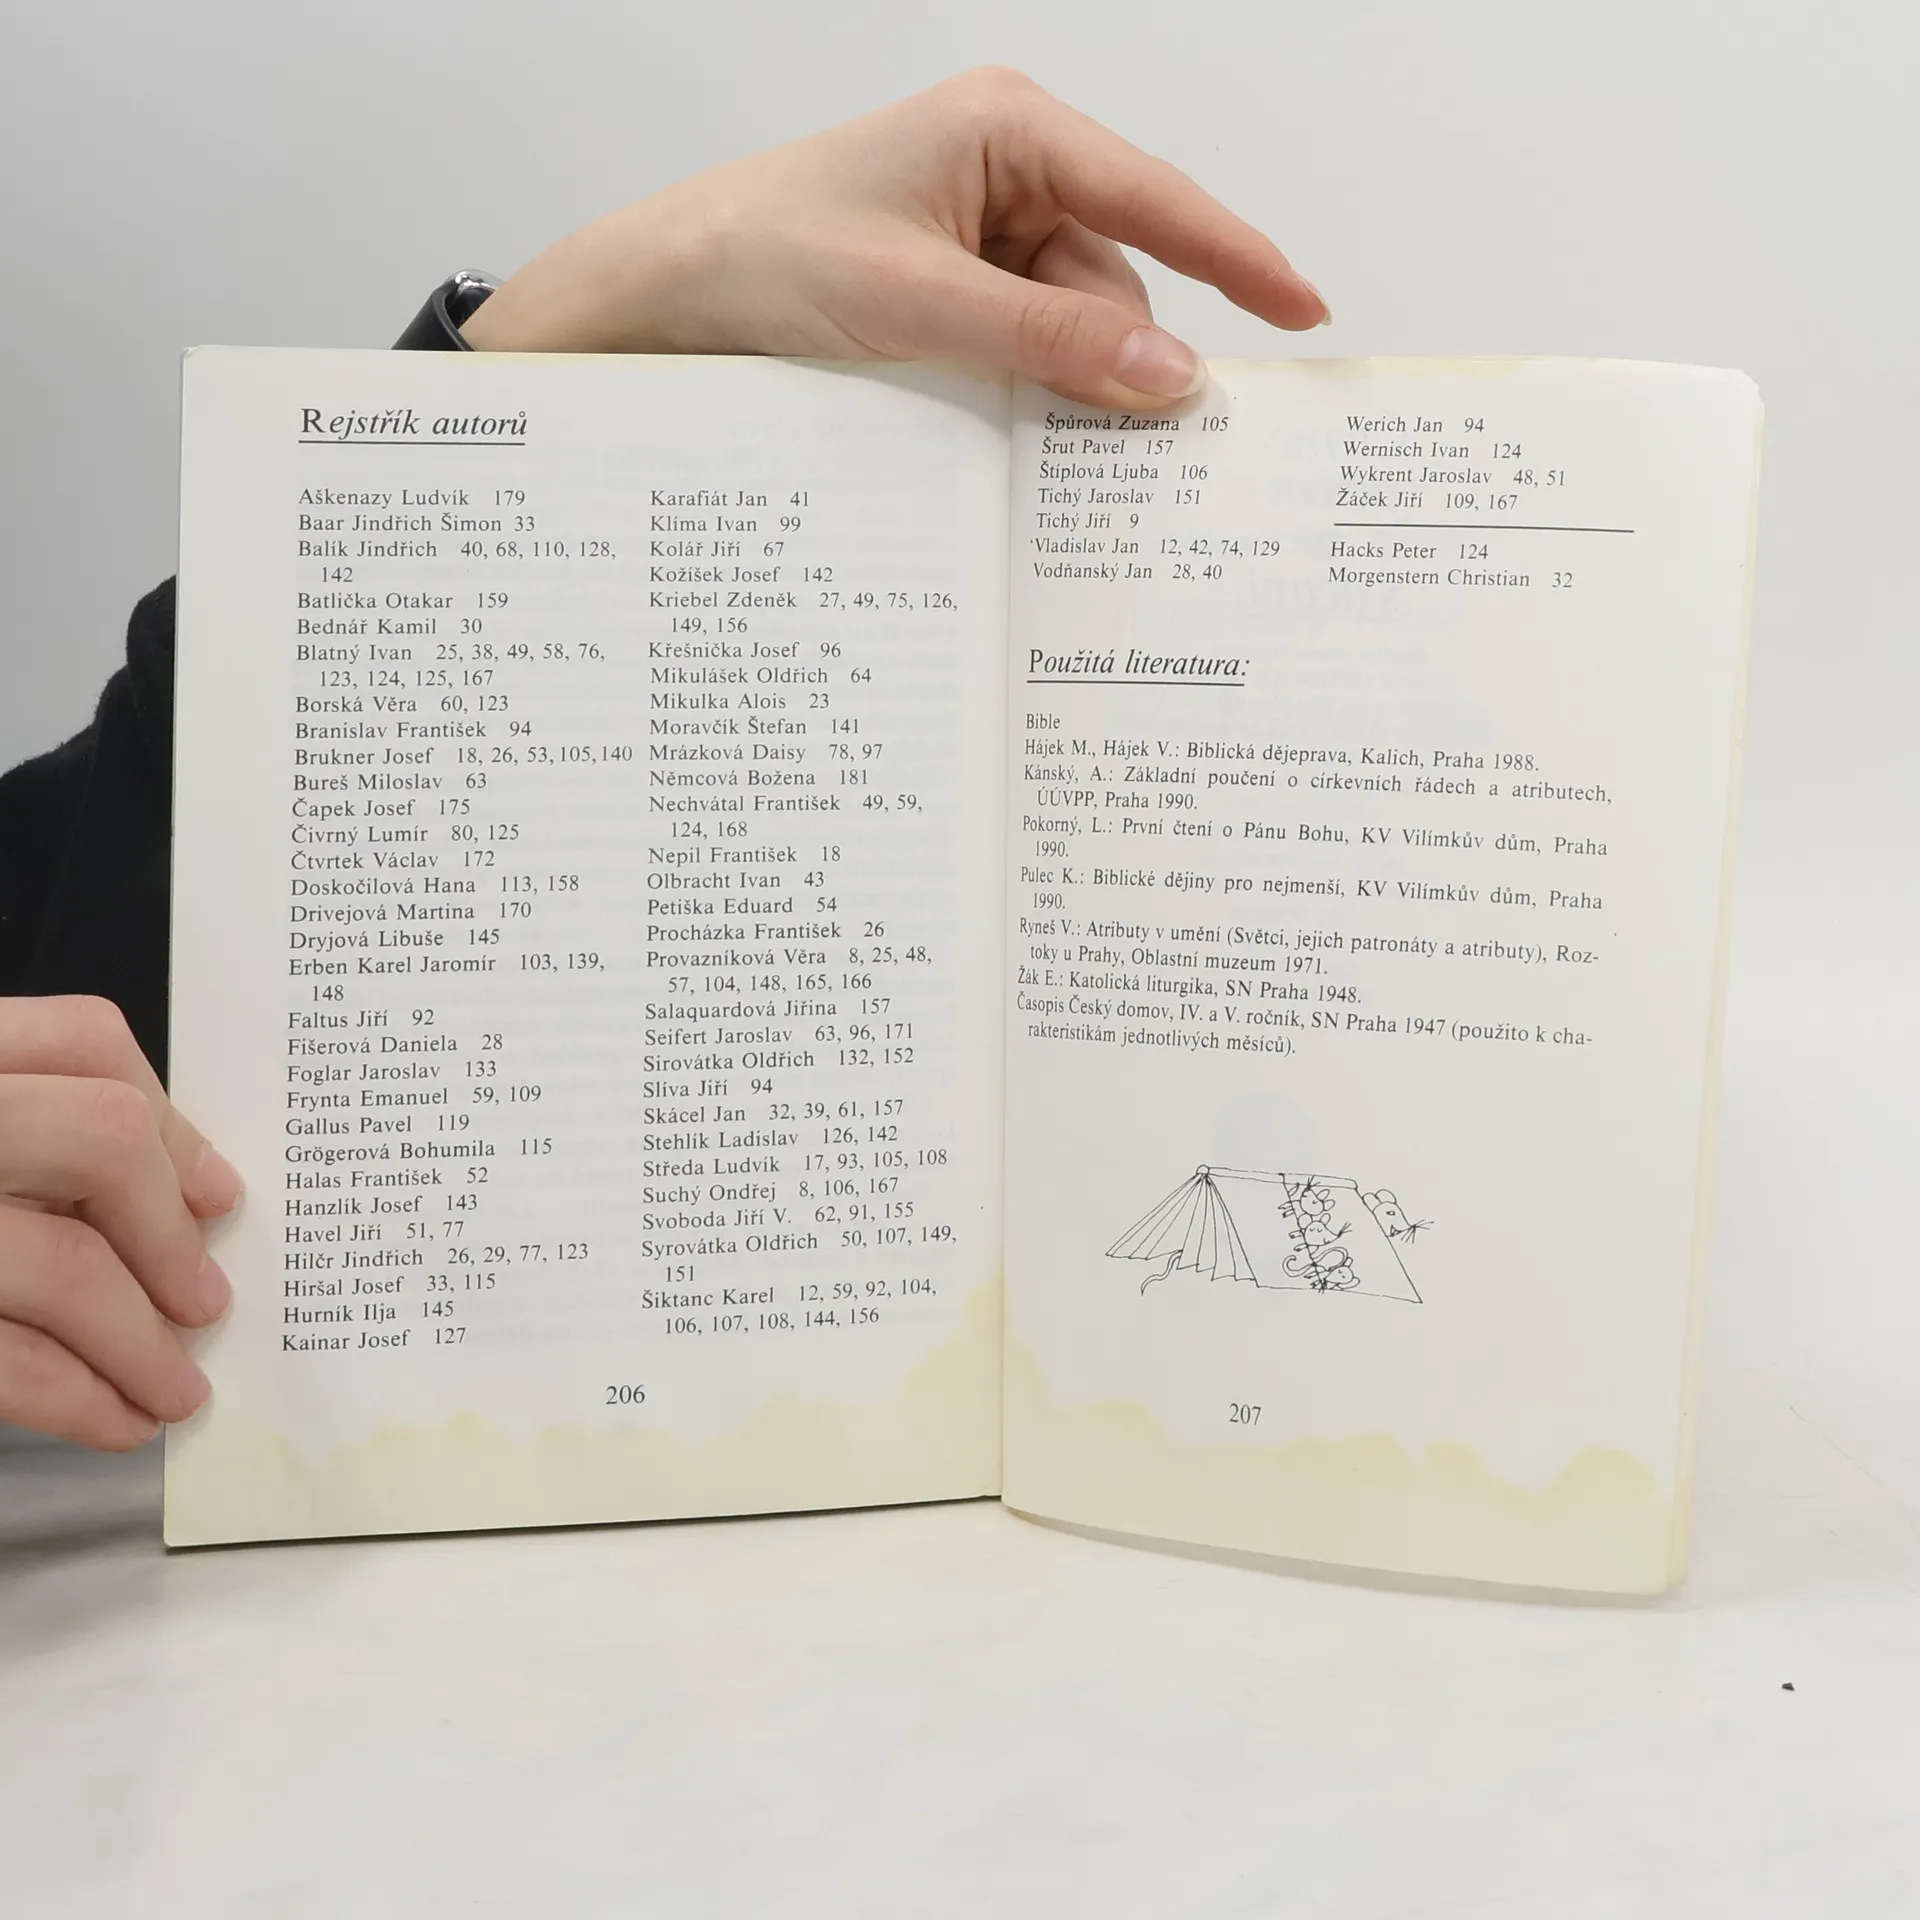 Rejstřík autorů
Aškenazy Ludvík 179
Baar Jindřich Šimon 33
Balík Jindřich 40, 68, 110, 128,
142
Batlička Otakar 159
Bednář Kamil 30
Blatný Ivan 25, 38, 49, 58, 76,
123, 124, 125, 167
Borská Věra 60, 123
Branislav František 94
Brukner Josef 18, 26, 53, 105, 140
Bureš Miloslav 63
Čapek Josef 175
Čivrný Lumír 80, 125
Čtvrtek Václav 172
Doskočilová Hana 113, 158
Drivejová Martina 170
Dryjová Libuše 145
Erben Karel Jaromír 103, 139,
148
Faltus Jiří 92
Fišerová Daniela 28
Foglar Jaroslav 133
Frynta Emanuel 59, 109
Gallus Pavel 119
Grögerová Bohumila 115
Halas František 52
Hanzlík Josef 143
Havel Jiří 51, 77
Hilčr Jindřich 26, 29, 77, 123
Hiršal Josef 33, 115
Hurník Ilja 145
Kainar Josef 127
Karafiát Jan 41
Klíma Ivan 99
Kolář Jiří 67
Kožíšek Josef 142
Kriebel Zdeněk 27, 49, 75, 126,
149, 156
Křešnička Josef 96
Mikulášek Oldřich 64
Mikulka Alois 23
Moravčík Štefan 141
Mrázková Daisy 78, 97
Němcová Božena 181
Nechvátal František 49, 59,
124, 168
Nepil František 18
Olbracht Ivan 43
Petiška Eduard 54
Procházka František 26
Provazníková Věra 8, 25, 48,
57, 104, 148, 165, 166
Salaquardová Jiřina 157
Seifert Jaroslav 63, 96, 171
Sirovátka Oldřich 132, 152
Slíva Jiří 94
Skácel Jan 32, 39, 61, 157
Stehlík Ladislav 126, 142
Středa Ludvík 17, 93, 105, 108
Suchý Ondřej 8, 106, 167
Svoboda Jiří V. 62, 91, 155
Syrovátka Oldřich 50, 107, 149,
151
Šiktanc Karel 12, 59, 92, 104,
106, 107, 108, 144, 156
206
Špůrová Zuzana 105
Šrut Pavel 157
Štíplová Ljuba 106
Tichý Jaroslav 151
Tichý Jiří 9
Vladislav Jan 12, 42, 74, 129
Vodňanský Jan 28, 40
Werich Jan 94
Wernisch Ivan 124
Wykrent Jaroslav 48, 51
Žáček Jiří 109, 167
Hacks Peter 124
Morgenstern Christian 32
Použitá literatura:
Bible
Hájek M., Hájek V.: Biblická dějeprava, Kalich, Praha 1988.
Kánský, A.: Základní poučení o církevních řádech a atributech,
ÚÚVPP, Praha 1990.
Pokorný, L.: První čtení o Pánu Bohu, KV Vilímkův dům, Praha
1990.
Pulec K.: Biblické dějiny pro nejmenší, KV Vilímkův dům, Praha
1990.
Ryneš V.: Atributy v umění (Světci, jejich patronáty a atributy), Roz-
toky u Prahy, Oblastní muzeum 1971.
Žák E.: Katolická liturgika, SN Praha 1948.
Časopis Český domov, IV. a V. ročník, SN Praha 1947 (použito k cha-
rakteristikám jednotlivých měsíců).
207